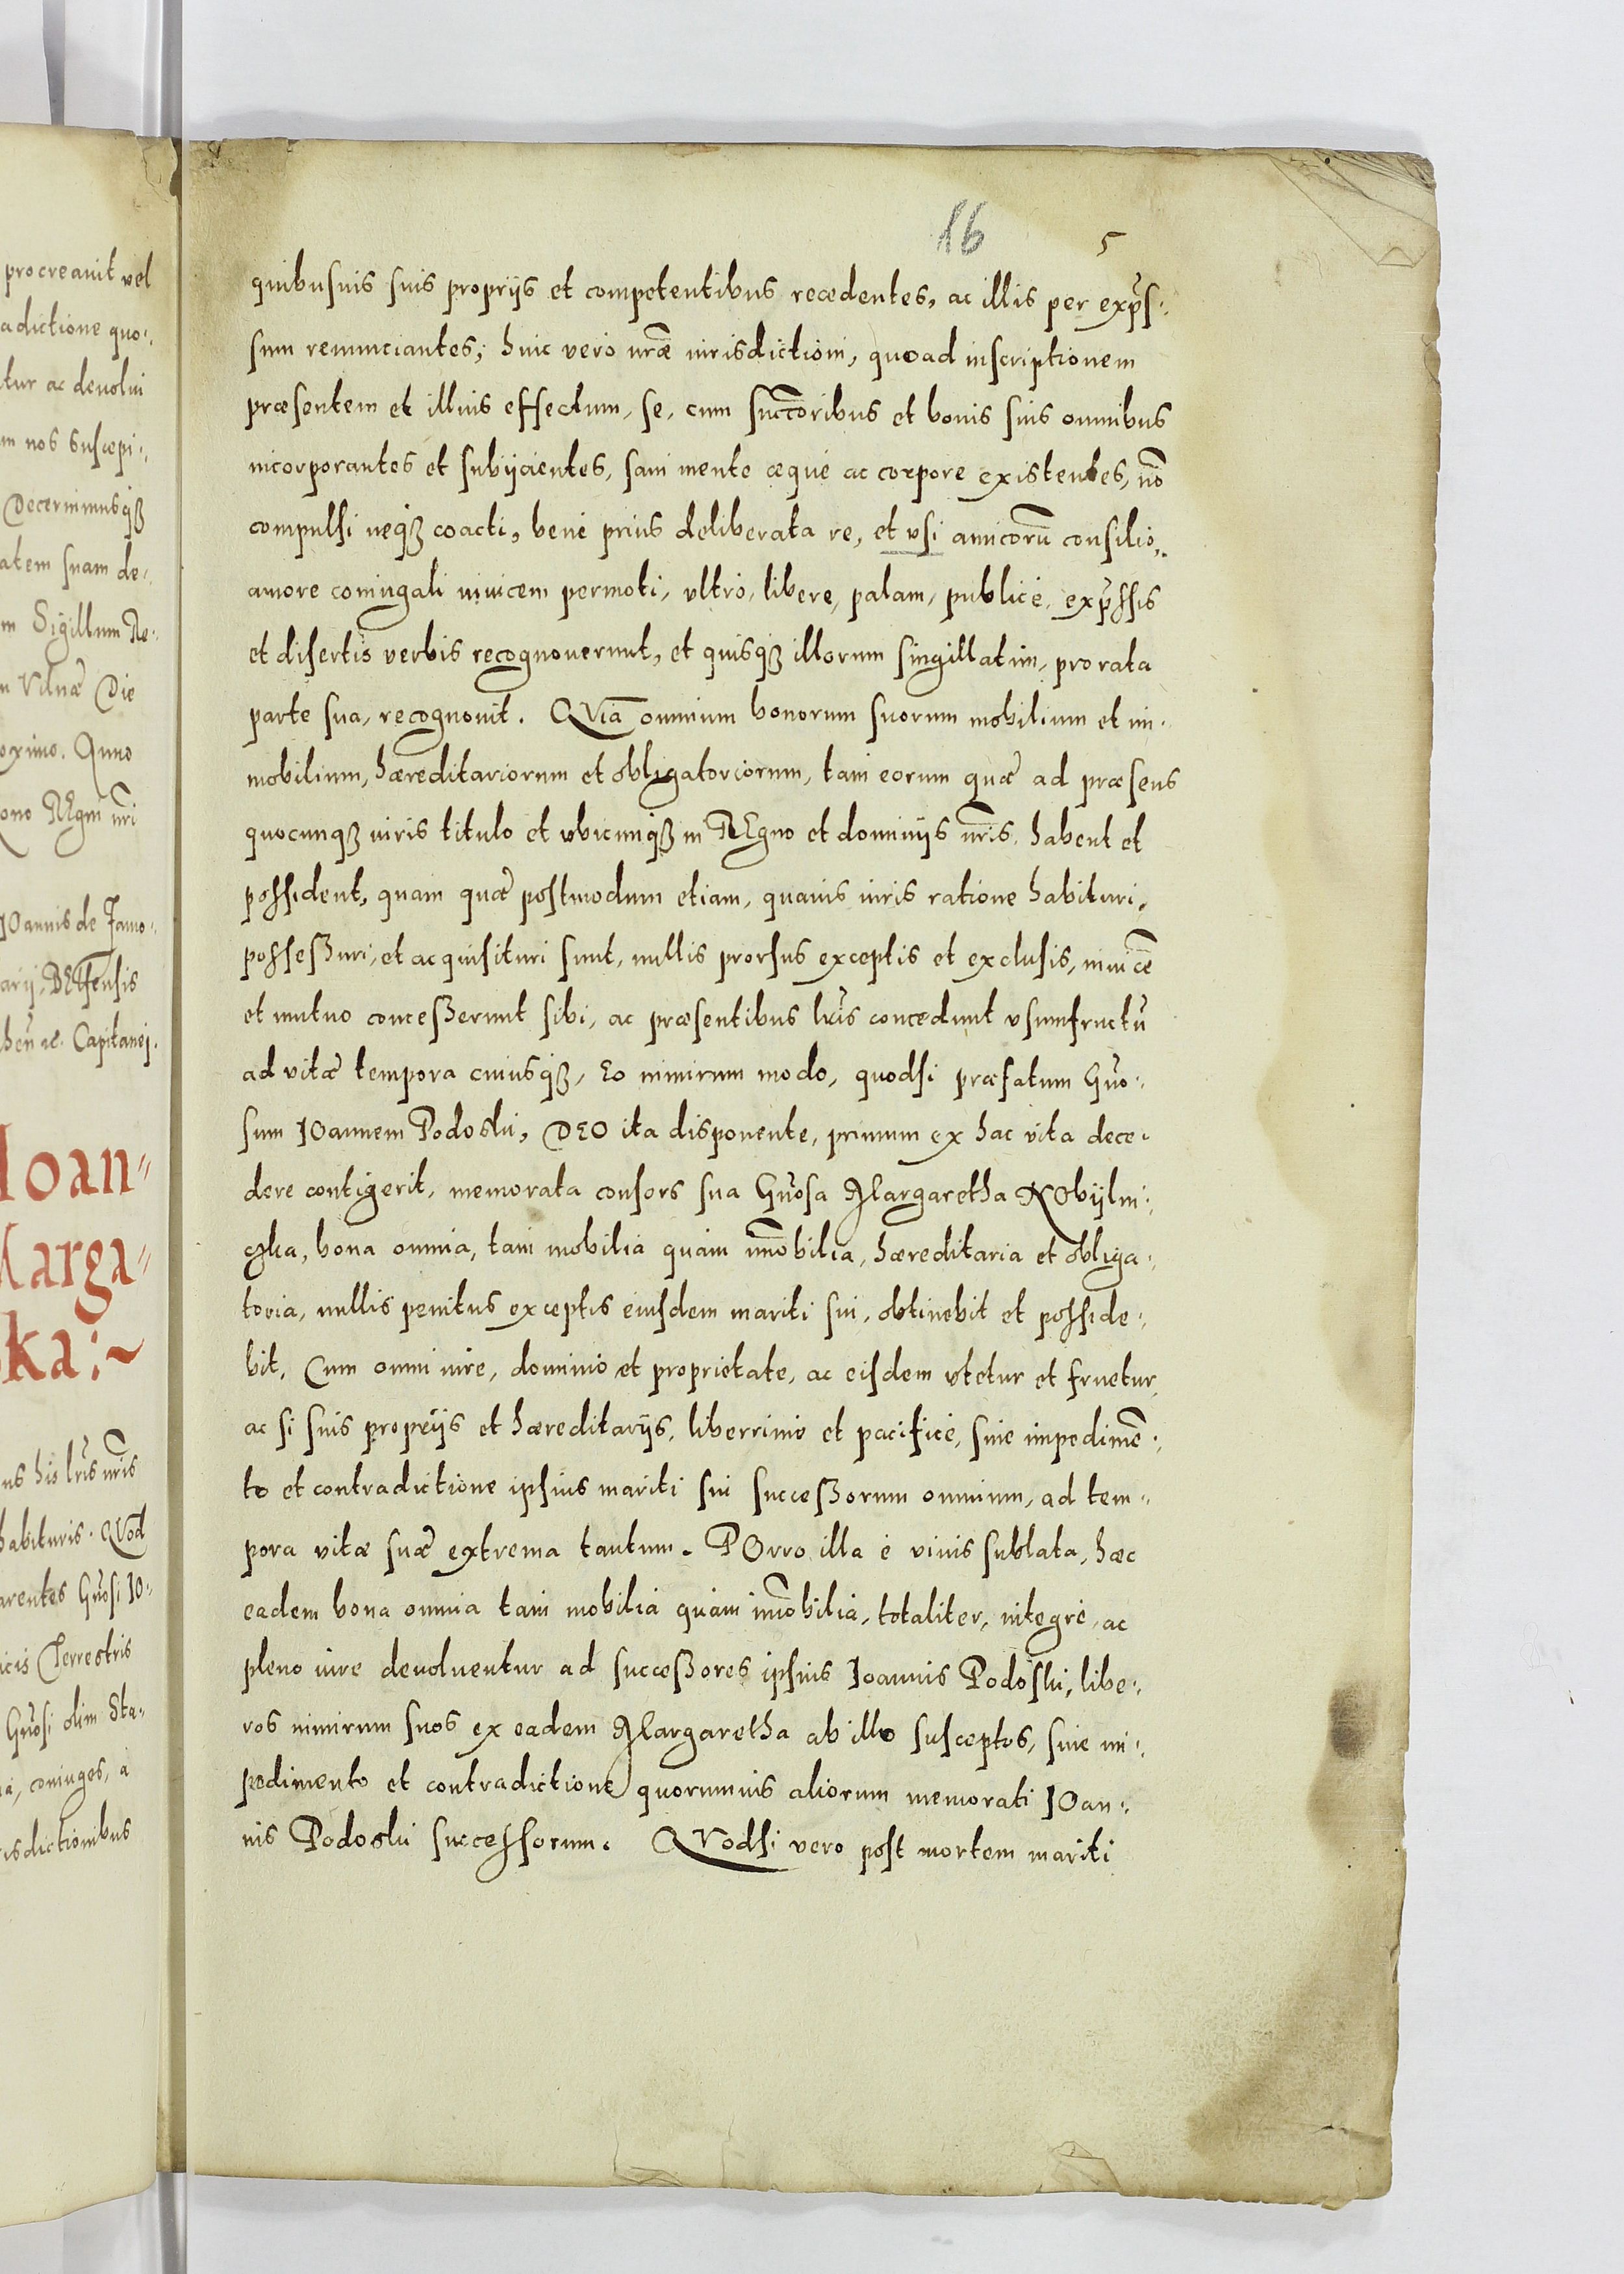 procreauit vel
adictione quo:
tur ac deuolui
m nos suscepi:
Decernimusqꜗ
atem suam de:
m Sigillum Re:
Vilnæ Die
oximo. Anno
ono REgni nr̃i
IOannis de Zamo:
arij, BEłzensis
Capitanej.
Ioan=
Marga=
ka:~
ns his lr̃is nr̃is
habituris. QVod
arentes Gn̄osi IO:
icis Terrestris
Gn̄osi olim Sta:
a, coniuges, a
isdictionibus
16 5
quibusuis suis proprijs et competentibus recedentes, ac illis per exp̃s:
sum renunciantes; huic vero nr̃æ iurisdictioni, quoad inscriptionem
præsentem et illius effectum, se, cum succ̃oribus et bonis suis omnibus
incorporantes et subijcientes, sani mente æque ac corpore existentes, nõ
compulsi neqꜗ coacti, bene prius deliberata re, et vsi amicorũ consilio,
amore coniugali inuicem permoti, vltro, libere, palam, publice, exp̃ssis
et disertis verbis recognouerunt, et quisqꜗ illorum singillatim, pro rata
parte sua, recognouit. QVia omnium bonorum suorum mobilium et im:
mobilium, hæreditariorum et obligatoriorum, tam eorum quæ ad præsens
quocunqꜗ iuris titulo et vbicunqꜗ in REgno et dominijs nr̃is habent et
possident, quam quæ postmodum etiam, quauis iuris ratione habituri,
possessuri, et acquisituri sunt, nullis prorsus exceptis et exclusis, inuicẽ
et mutuo concesserunt sibi, ac præsentibus lr̃is concedunt vsumfructũ
ad vitæ tempora cuiusqꜗ, Eo nimirum modo, quodsi præfatum Gn̄o:
sum IOannem Podoski, DEO ita disponente, primum ex hac vita dece:
dere contigerit, memorata consors sua Gn̄osa Margaretha KObijlni:
czka, bona omnia, tam mobilia quam im̃obilia, hæreditaria et obliga:
toria, nullis penitus exceptis eiusdem mariti sui, obtinebit et posside:
bit, Cum omni iure, dominio et proprietate, ac eisdem vtetur et fruetur
ac si suis proprijs et hæreditarijs, liberrime et pacifice, sine impedimẽ:
to et contradictione ipsius mariti sui successorum omnium, ad tem:
pora vitæ suæ extrema tantum. POrro illa e viuis sublata, hæc
eadem bona omnia tam mobilia quam im̃obilia, totaliter, integre, ac
pleno iure deuoluentur ad successores ipsius Ioannis Podoski, libe:
ros nimirum suos ex eadem Margaretha ab illo susceptos, sine im:
pedimento et contradictione quorumuis aliorum memorati IOan:
nis Podoski successorum. QVodsi vero post mortem mariti